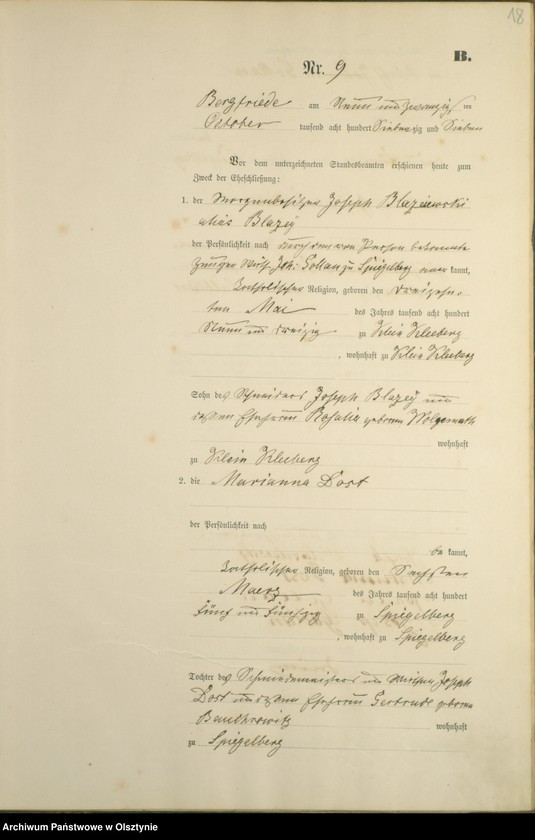 18
B.
Nr. 9
Bergfriede am Neun und zwanzigsten
October tausend acht hundert Siebenzig und Sieben
Vor dem unterzeichneten Standesbeamten erschienen heute zum
Zweck der Eheschließung:
1. der Morgenbesitzer Joseph Blaziewski
alias Blazey
der Persönlichkeit nach durch von Person bekannte
Zeugen Wirth Joh: Gollan zu Spiegelberg kannt,
katholischer Religion, geboren den dreizehn-
ten Mai des Jahres tausend acht hundert
Neun und dreizig zu Klein Kleeberg
, wohnhaft zu Klein Kleeberg
Sohn des Schneiders Joseph Blazey und
dessen Ehefrau Rosalia geborene Wolgemuth
wohnhaft
zu Klein Kleeberg
2. die Marianna Dost
der Persönlichkeit nach
be kannt,
katholischer Religion, geboren den Sechsten
Maerz des Jahres tausend acht hundert
fünf und fünfzig zu Spiegelberg
, wohnhaft zu Spiegelberg
Tochter des Schmiedemeisters und Wirthen Joseph
Dost und dessen Ehefrau Gertrude geborene
wohnhaft
zu Spiegelberg
Archiwum Państwowe w Olsztynie